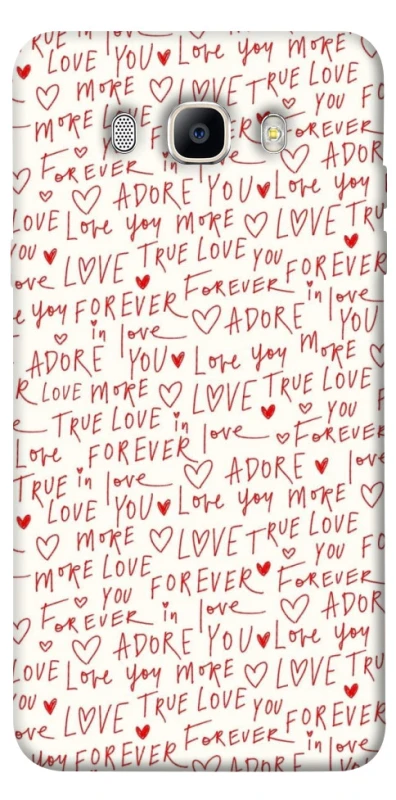 TRUE in love YOU
LOVE YOU ADORE Love you MORE
MORE LOVE TRUE LOVE
MORE LOVE YOU FO
FOREVER FOREVER
FOREVER in love ADOR
ADORE YOU Love you
LOVE Love you MORE LOVE TRU
YOU TRUE LOVE YOU FOREVER
love LOVE FOREVER in love
e you FOREVER ADORE YOU
in love
ADORE YOU Love you MORE
R LOVE MORE LOVE TRUE LOVE
TRUE LOVE in love YOU
Love FOREVER FOREVER
TRUE in love ADORE love
LOVE YOU Love you MORE
MORE LOVE TRUE LOVE
MORE LOVE YOU FO
YOU FOREVER FOREVER
FOREVER in love ADOR
ADORE YOU Love you
LOVE Love you MORE LOVE TRU
YOU TRUE LOVE YOU FOREVER
ove LOVE FOREVER in love
you FOREVER ADORE YOU